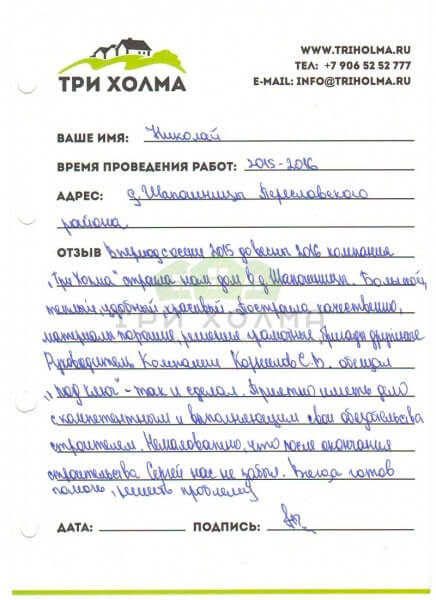 ТРИ ХОЛМА
WWW.TRIHOLMA.RU
ТЕЛ: +7 906 52 52 777
E-MAIL: INFO@TRIHOLMA.RU
ВАШЕ ИМЯ: Николай
ВРЕМЯ ПРОВЕДЕНИЯ РАБОТ: 2015-2016
АДРЕС: д. Шапошницы Переславского
района
ОТЗЫВ В период с осени 2015 до весны 2016 компания
„Три Холма" строила нам дом в д. Шапошницы. Большой,
теплый, удобный, красивый. Построили качественно,
материалы хорошие, решения грамотные, бригада дружная
Руководитель Компании С.В. обещал
„под ключ" - так и сделал. Приятно иметь дело
с компетентным и выполняющим свои обязательства
строителем. Немаловажно, что после окончания
строительства Сергей нас не забыл. Всегда готов
помочь, решить проблему
ТРИ ХОЛМА
ДАТА:
ПОДПИСЬ: